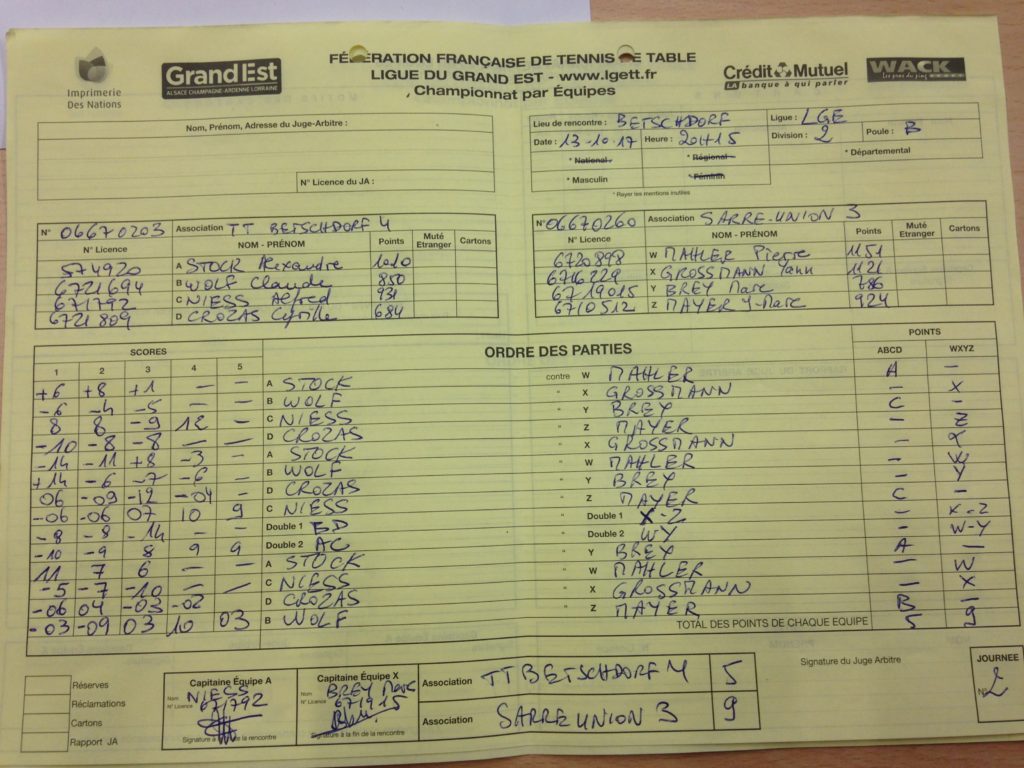 FÉDÉRATION FRANÇAISE DE TENNIS DE TABLE
LIGUE DU GRAND EST - www.lgett.fr
Championnat par Équipes
Imprimerie
Des Nations
GrandEst
ALSACE CHAMPAGNE-ARDENNE LORRAINE
Crédit Mutuel
LA banque à qui parler
WACK
Les pros du ping
Nom, Prénom, Adresse du Juge-Arbitre :
N° Licence du JA :
Lieu de rencontre : BETSCHDORF Ligue : LGE
Date : 13-10-17 Heure : 20H15 Division : 2 Poule : B
* National * Régional * Départemental
* Masculin * Féminin
* Rayer les mentions inutiles
N° 06670203 Association TT BETSCHDORF 4
N° Licence NOM - PRÉNOM Points Muté Etranger Cartons
574920 A STOCK Alexandre 1010
6721694 B WOLF Claude 850
671792 C NIESS Alfred 931
6721809 D CROZAS Cyrille 684
N° 06670260 Association SARRE-UNION 3
N° Licence NOM - PRÉNOM Points Muté Etranger Cartons
6720898 W MAHLER Pierre 1151
6716229 X GROSSMANN Yann 1121
6719015 Y BREY Marc 786
6710512 Z MAYER J-Marc 924
SCORES ORDRE DES PARTIES POINTS
1 2 3 4 5 ABCD WXYZ
+6 +8 +1 — — A STOCK contre W MAHLER A —
-6 -4 -5 — — B WOLF " X GROSSMANN — X
8 8 -9 12 — C NIESS " Y BREY C —
-10 -8 -8 — — D CROZAS " Z MAYER — Z
-14 -11 +8 -3 — A STOCK " X GROSSMANN — X
+14 -6 -7 -6 — B WOLF " W MAHLER — W
06 -09 -12 -04 — D CROZAS " Y BREY — Y
-06 -06 07 10 9 C NIESS " Z MAYER C —
-8 -8 -14 — — Double 1 BD " Double 1 X-Z — X-Z
-10 -9 8 9 9 Double 2 AC " Double 2 WY — W-Y
11 7 6 — — A STOCK " Y BREY A —
-5 -7 -10 — — C NIESS " W MAHLER — W
-06 04 -03 -02 D CROZAS " X GROSSMANN — X
-03 -09 03 10 03 B WOLF " Z MAYER B —
TOTAL DES POINTS DE CHAQUE EQUIPE 5 9
Réserves
Réclamations
Cartons
Rapport JA
Capitaine Équipe A
Nom NIESS
N° Licence 671792
Signature à la fin de la rencontre
Capitaine Équipe X
Nom BREY Marc
N° Licence 671915
Signature à la fin de la rencontre
Association TT BETSCHDORF 4 5
Association SARRE UNION 3 9
Signature du Juge Arbitre
JOURNEE
N° 2